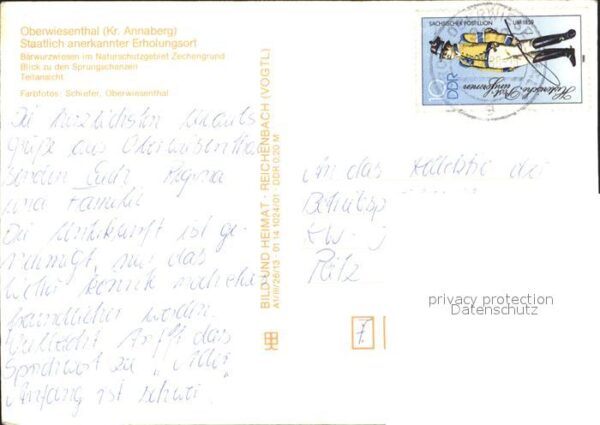 Oberwiesenthal (Kr. Annaberg)
Staatlich anerkannter Erholungsort
Bärwurzwiesen im Naturschutzgebiet Zechengrund
Blick zu den Sprungschanzen
Teilansicht
Farbfotos: Schiefer, Oberwiesenthal
Die herzlichsten Urlaubs
grüße aus Oberwiesenthal
senden Euch Regina
und Familie
Die Unterkunft ist ge-
nehmigt, nur das
Wetter könnte noch etwas
freundlicher werden.
Vielleicht trifft das
Sprichwort zu „Aller
Anfang ist schwer
BILD UND HEIMAT · REICHENBACH (VOGTL)
A1/III/26/13 · 01 14 1024/01 · DDR 0,20 M
SÄCHSISCHER POSTILLION UM 1850
Historische Post-
uniformen
10 DDR
An das
der
7.
privacy protection
Datenschutz